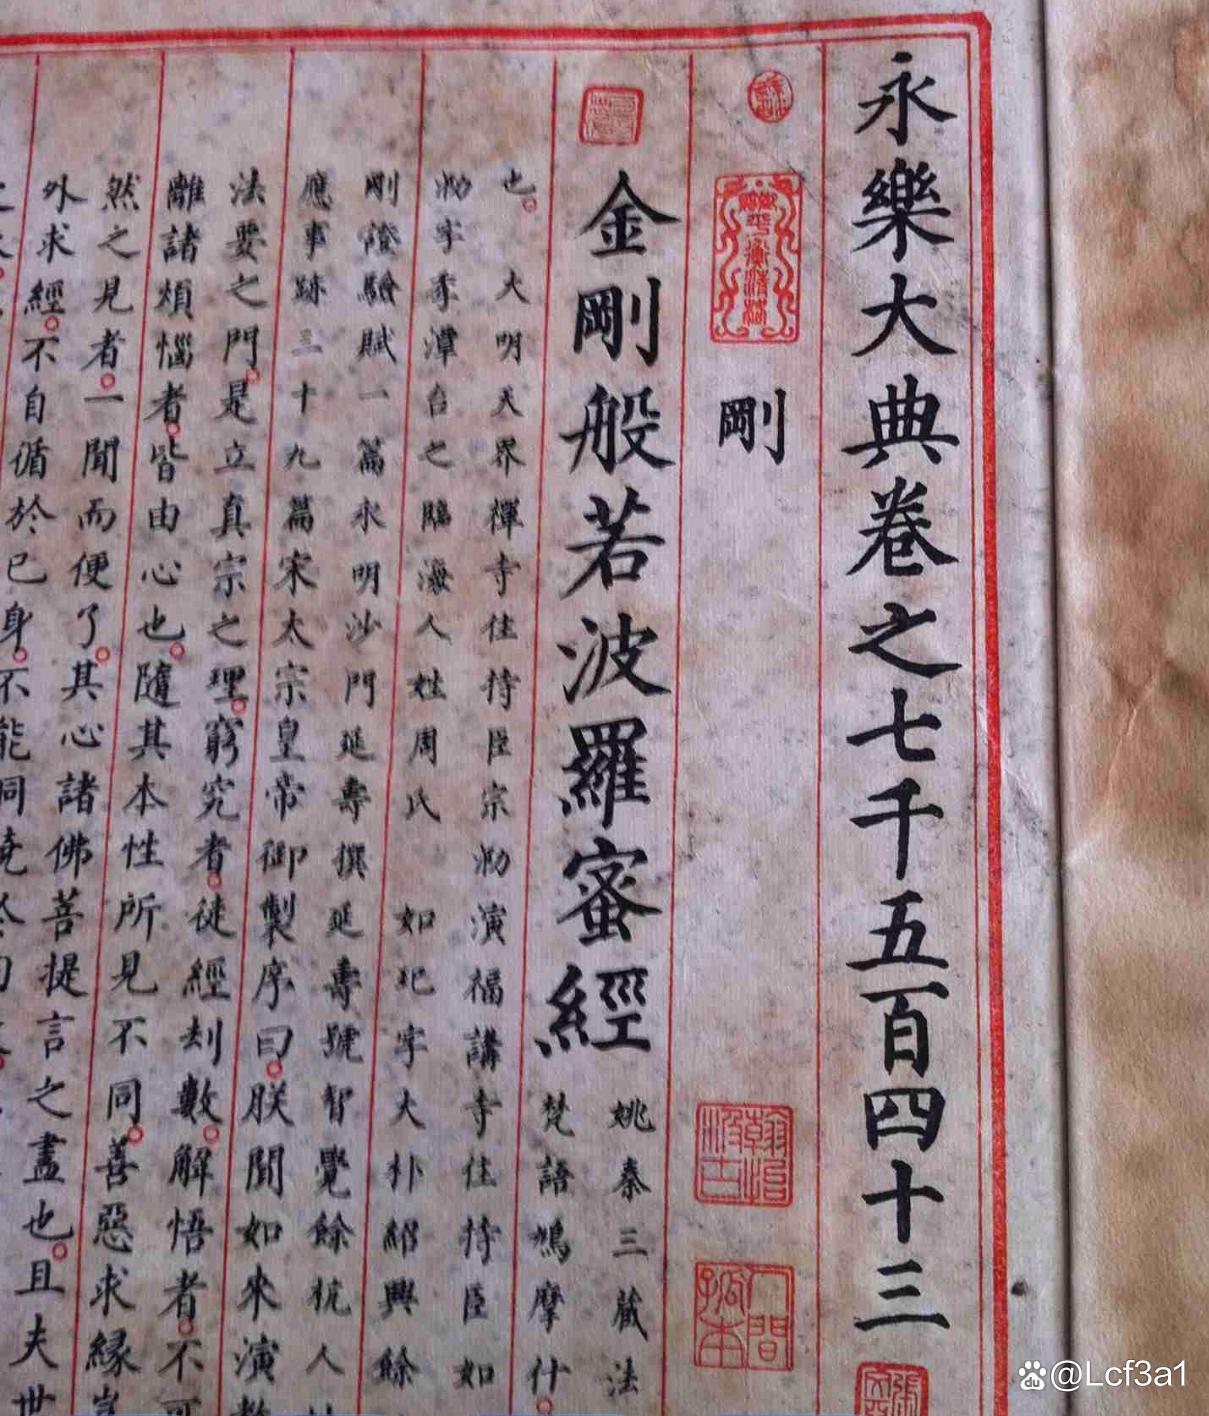 永樂大典卷之七千五百四十三
剛
金剛般若波羅蜜經
姚秦三藏法
梵語鳩摩什
也。大明天界禪寺住持臣宗泐演福講寺住持臣如
泐字季潭台之臨海人姓周氏 如玘字大朴紹興餘
剛證驗賦一篇永明沙門延壽撰延壽號智覺餘杭人
應事跡三十九篇宋太宗皇帝御製序曰。朕聞如來演
法要之門。是立真宗之理。窮究者。徒經刦數。解悟者。不
離諸煩惱者。皆由心也。隨其本性所見不同。善惡求緣
然之見者。一聞而便了。其心諸佛菩提言之盡也。且夫世
外求經。不自循於已身。不能同
@Lcf3a1